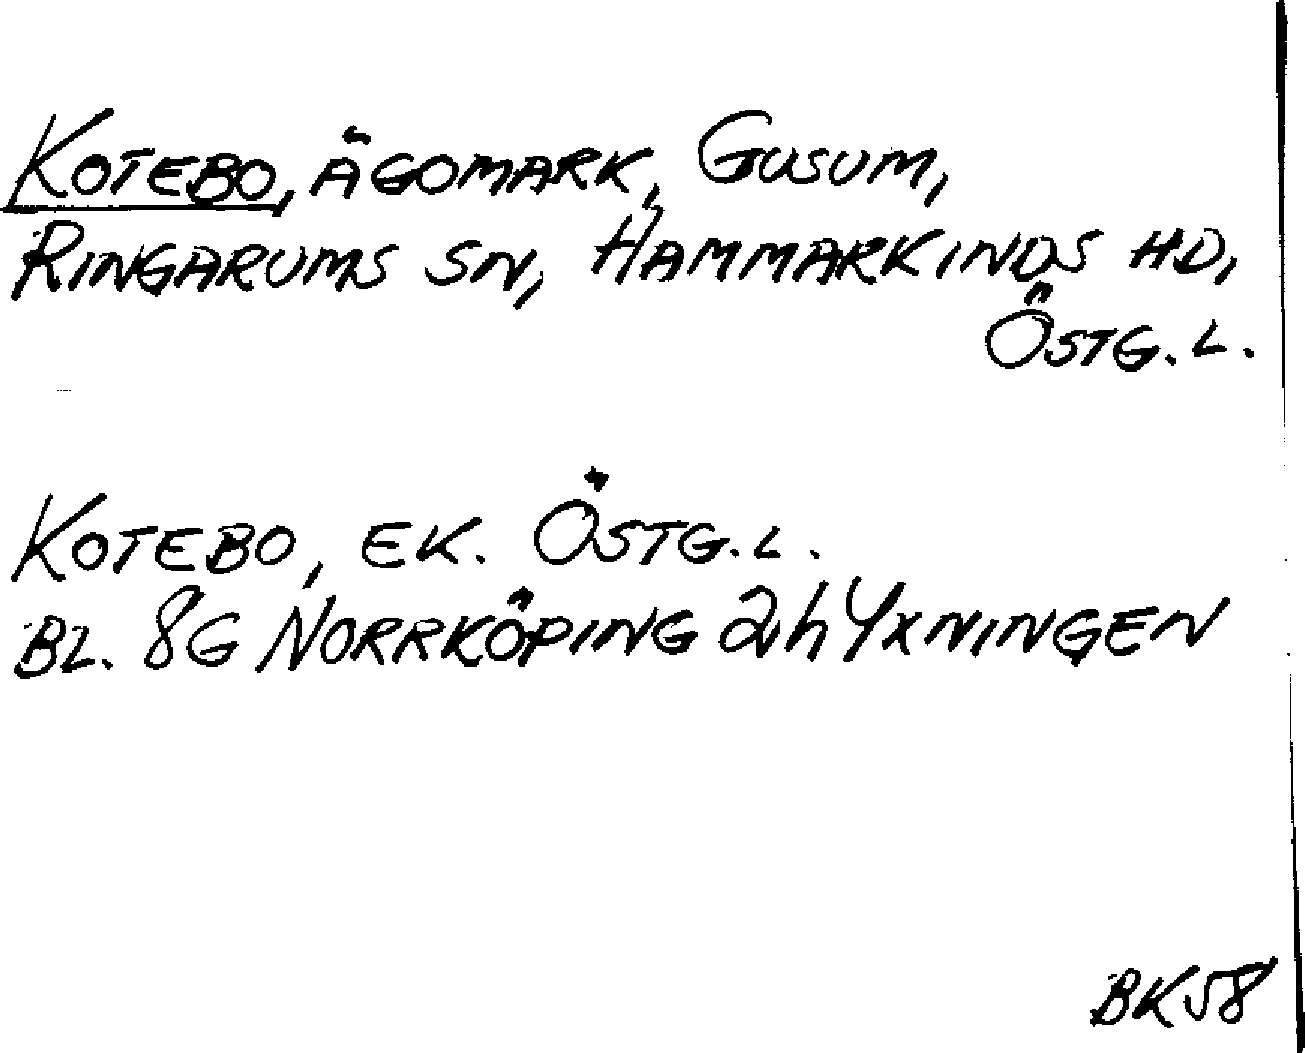 KOTEBO, ÄGOMARK, GUSUM,
RINGARUMS SN, HAMMARKINDS HD,
ÖSTG. L.
KOTEBO, EK. ÖSTG. L.
BL. 8G NORRKÖPING 2h YXNINGEN
BK58